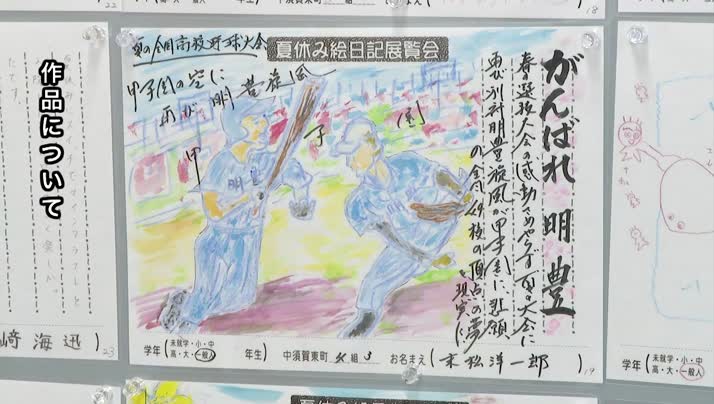 作品について
夏の全国高校野球大会
夏休み絵日記展覧会
甲子園の空に
再び
明豊旋風
甲
子
園
明豊
がんばれ 明豊
春の選抜大会の感動さめやらず 夏の大会に
再び別府明豊旋風が甲子園に 悲願
の全国49校の頂点の夢
を現実に
学年(
未就学・小・中
高・大・一般人
年生)
中須賀東町
組
お名まえ(末松洋一郎)
19
崎海迅
23
22
18
学年(
未就学・小・中
高・大・一般人
夏休み絵日記展覧会